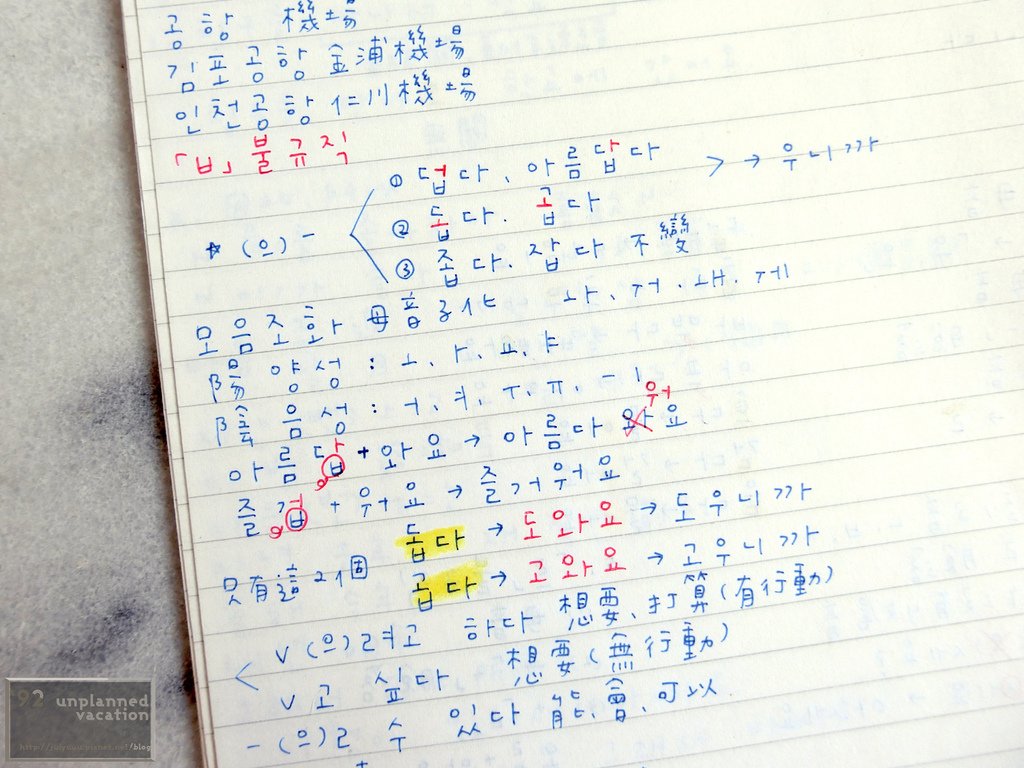 공항 機場
김포공항 金浦機場
인천공항 仁川機場
「ㅂ」불규직
① 덥다、아름답다 > → 우니까
★ (으)- ② 돕다. 곱다
③ 좁다、잡다 不變
모음조화 母音子化 ㅘ、ㅝ、ㅙ、ㅞ
陽 양성 : ㅗ、ㅏ、ㅛ、ㅑ
陰 음성 : ㅓ、ㅕ、ㅜ、ㅠ、ㅡㅣ
아름답 + 와요 → 아름다 와 워 요
즐겁 + 워요 → 즐거워요
돕다 → 도와요 → 도우니까
只有這2個 곱다 → 고와요 → 고우니까
V (으)려고 하다 想要、打算(有行動)
V 고 싶다 想要(無行動)
-(으)ㄹ 수 있다 能、會、可以
92 unplanned
vacation